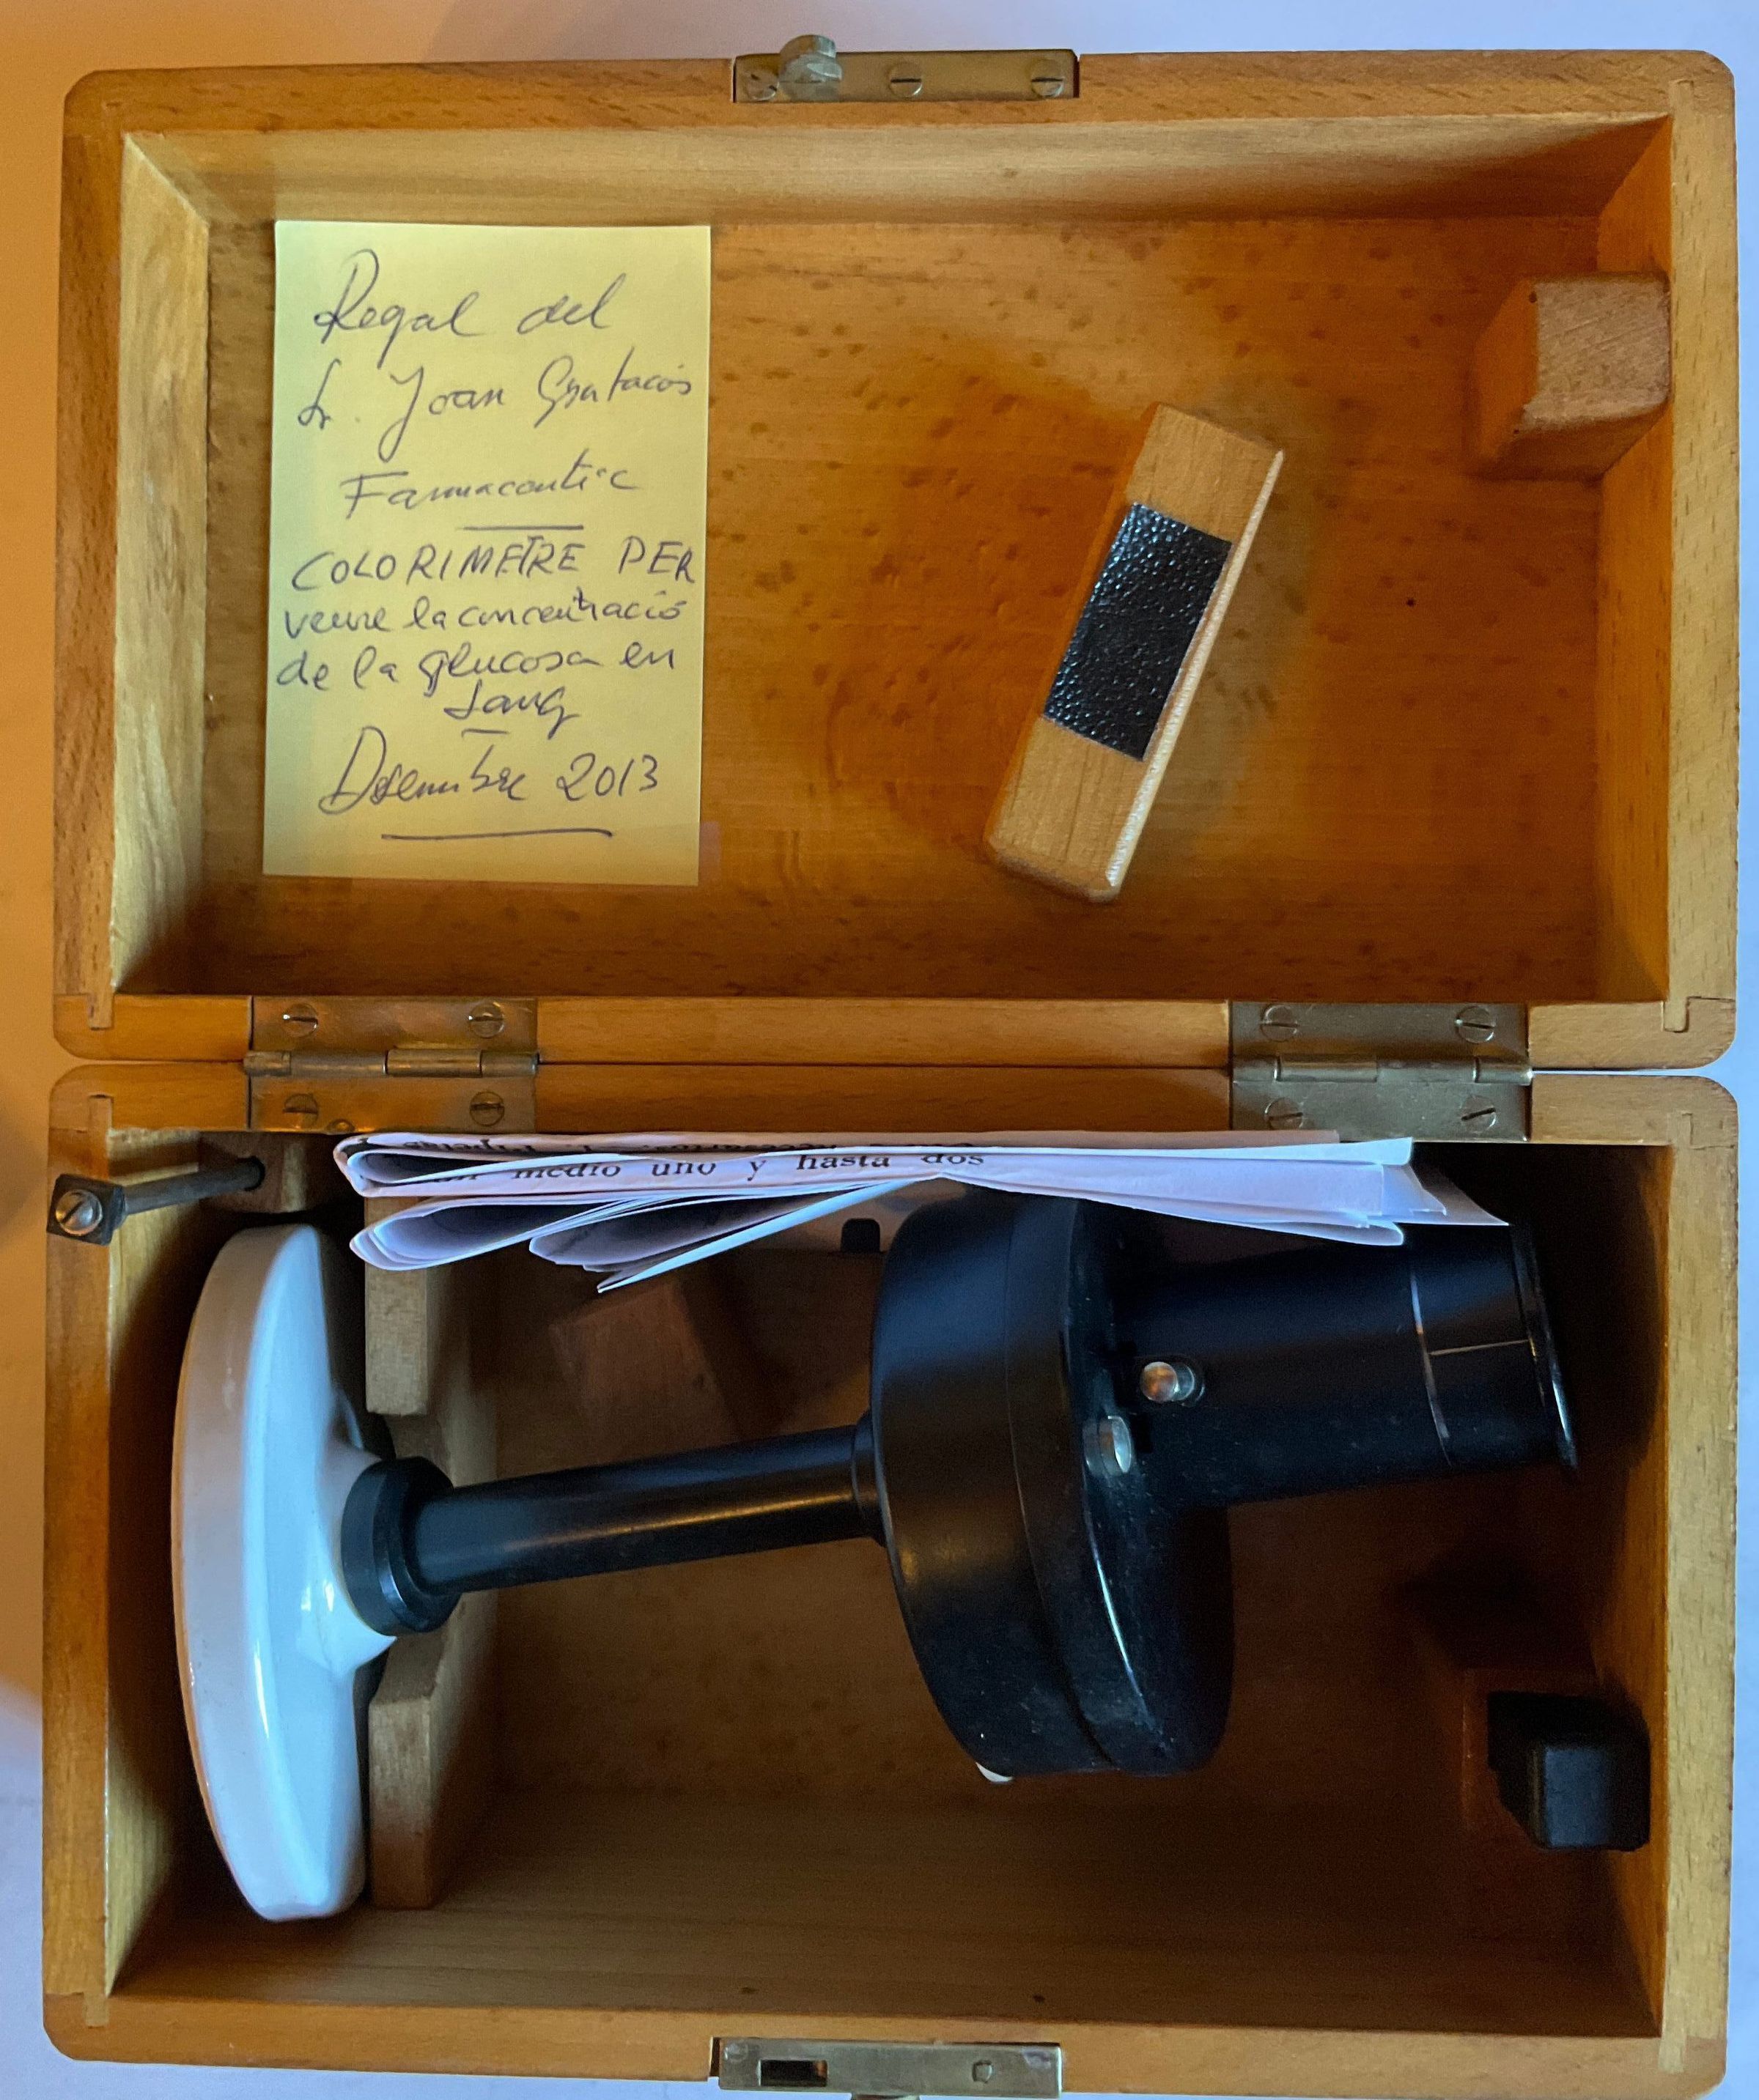 Regal del
Sr. Joan Gratacós
Farmacèutic
COLORIMETRE PER
veure la concentració
de la glucosa en
sang
Desembre 2013
medio uno y hasta dos